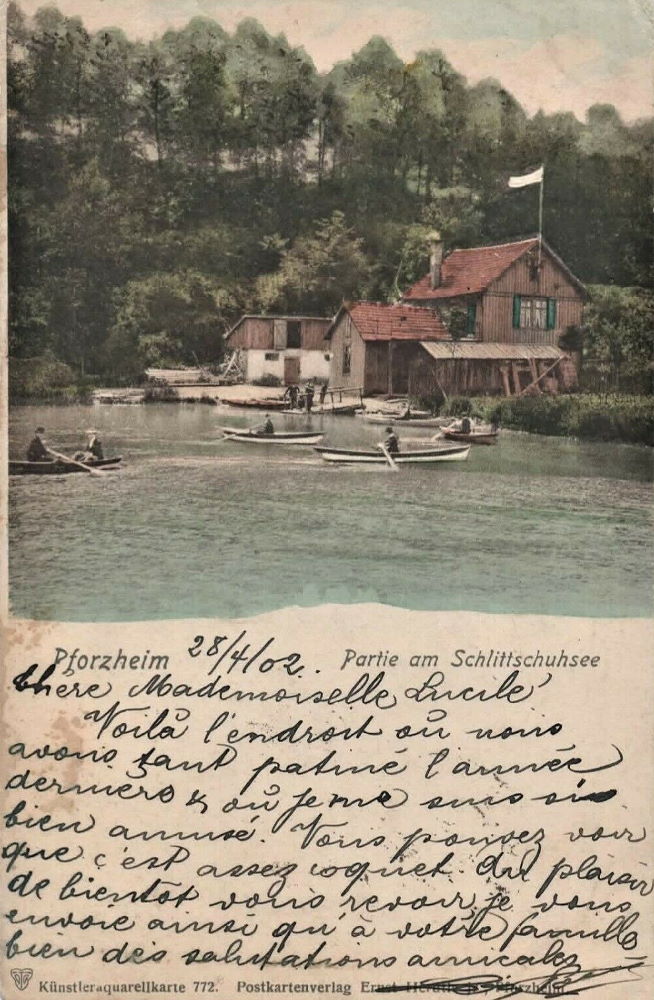 Pforzheim 28/4/02. Partie am Schlittschuhsee
Chère Mademoiselle Lucile
Voilà l'endroit où nous
avons tant patiné l'année
dernière & où je me suis si
bien amusé. Vous pouvez voir
que c'est assez coquet. Au plaisir
de bientôt vous revoir je vous
envoie ainsi qu'à votre famille
bien des salutations amicales
Künstleraquarellkarte 772. Postkartenverlag Ernst Pforzheim